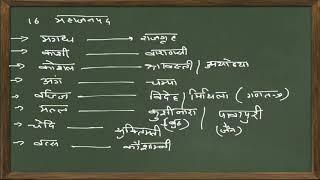 16 महाजनपद
मगध → राजगृह
काशी → वाराणसी
कोशल → श्रावस्ती / अयोध्या
अंग → चम्पा
वज्जि → विदेह / मिथिला (गणतन्त्र)
मल्ल → कुशीनारा (बुद्ध) / पावापुरी (जैन)
चेदि → शुक्तिमती
वत्स → कौशाम्बी